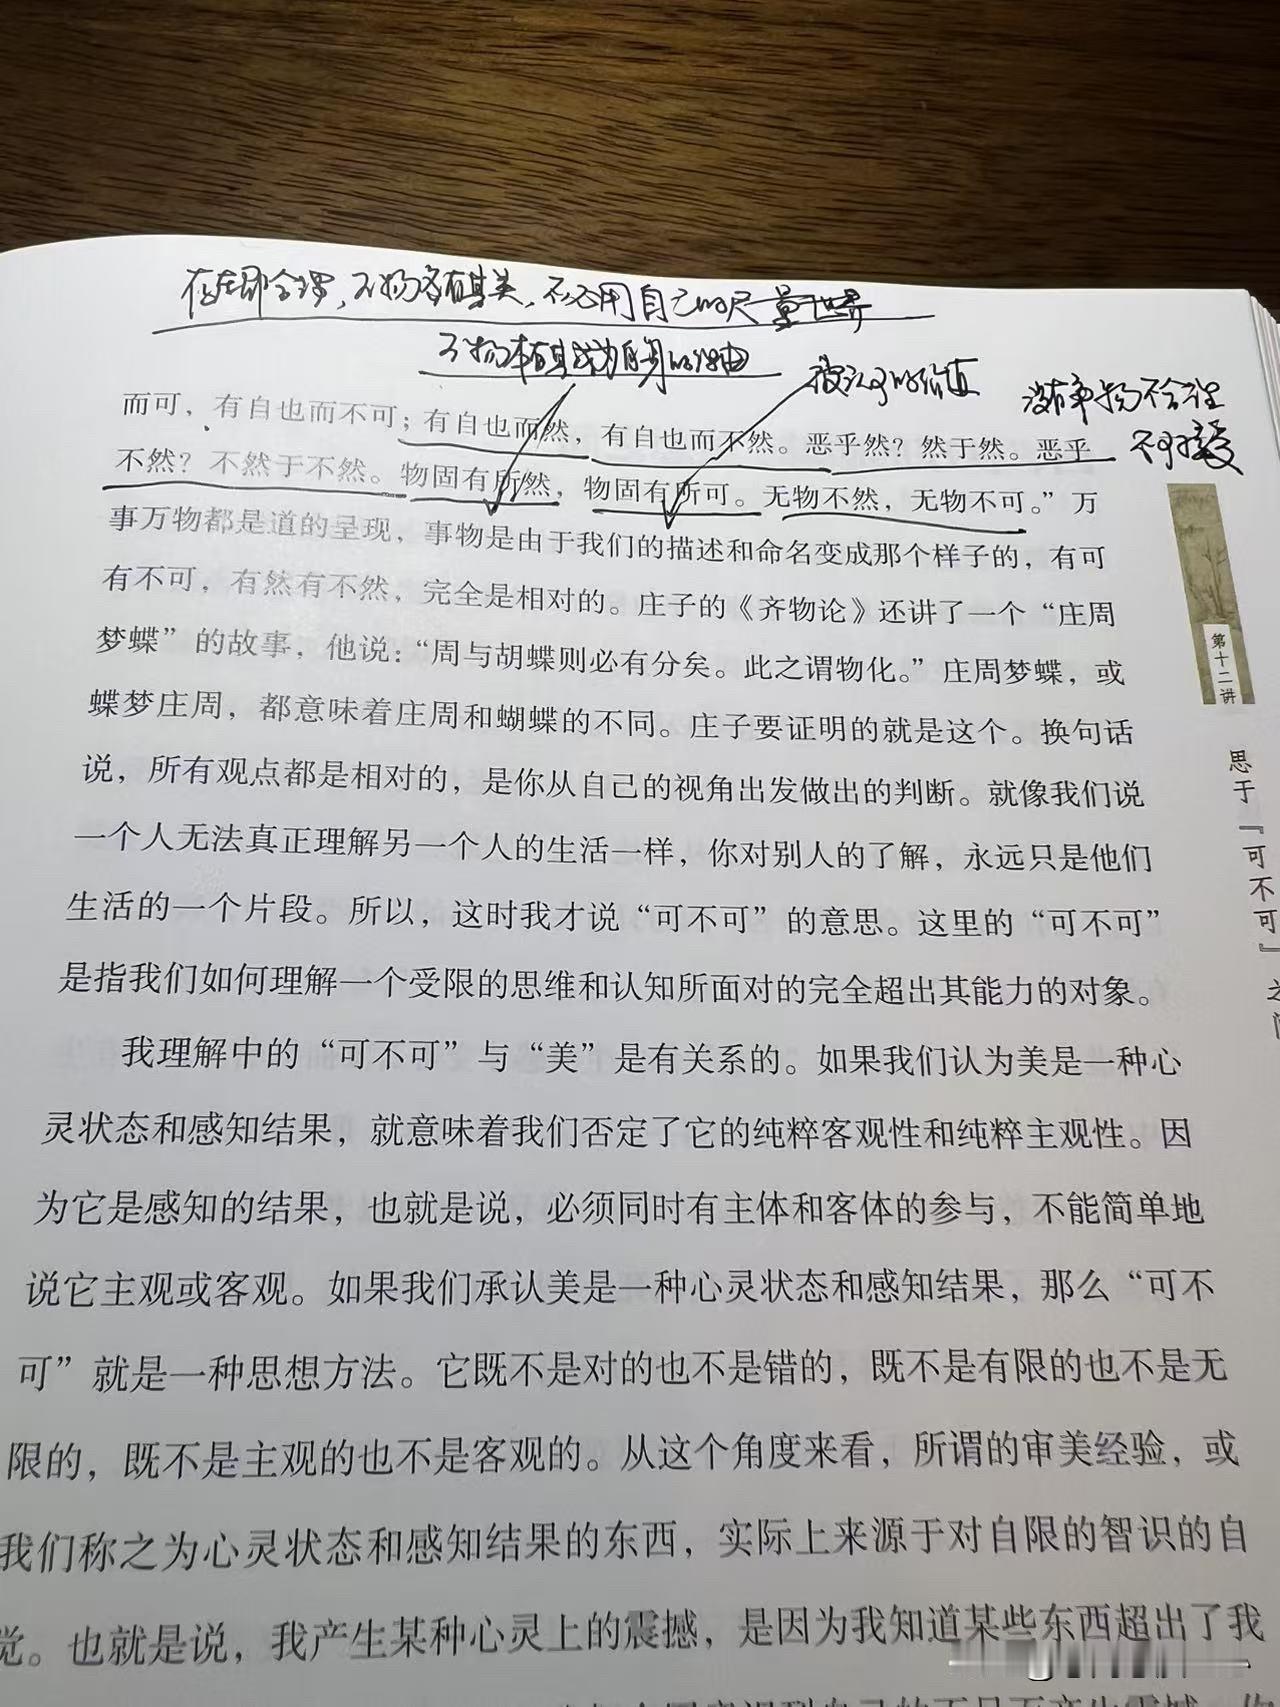 存在即合理，万物各有其美，不必用自己的尺量世界
万物本有其成为自身的理由
被认可的价值
没有事物不合理
不可接受
而可，有自也而不可；有自也而然，有自也而不然。恶乎然？然于然。恶乎
不然？不然于不然。物固有所然，物固有所可。无物不然，无物不可。”万
事万物都是道的呈现，事物是由于我们的描述和命名变成那个样子的，有可
有不可，有然有不然，完全是相对的。庄子的《齐物论》还讲了一个“庄周
梦蝶”的故事，他说：“周与胡蝶则必有分矣。此之谓物化。”庄周梦蝶，或
蝶梦庄周，都意味着庄周和蝴蝶的不同。庄子要证明的就是这个。换句话
说，所有观点都是相对的，是你从自己的视角出发做出的判断。就像我们说
一个人无法真正理解另一个人的生活一样，你对别人的了解，永远只是他们
生活的一个片段。所以，这时我才说“可不可”的意思。这里的“可不可”
是指我们如何理解一个受限的思维和认知所面对的完全超出其能力的对象。
我理解中的“可不可”与“美”是有关系的。如果我们认为美是一种心
灵状态和感知结果，就意味着我们否定了它的纯粹客观性和纯粹主观性。因
为它是感知的结果，也就是说，必须同时有主体和客体的参与，不能简单地
说它主观或客观。如果我们承认美是一种心灵状态和感知结果，那么“可不
可”就是一种思想方法。它既不是对的也不是错的，既不是有限的也不是无
限的，既不是主观的也不是客观的。从这个角度来看，所谓的审美经验，或
我们称之为心灵状态和感知结果的东西，实际上来源于对自限的智识的自
觉。也就是说，我产生某种心灵上的震撼，是因为我知道某些东西超出了我
第十二讲
思于『可不可』之